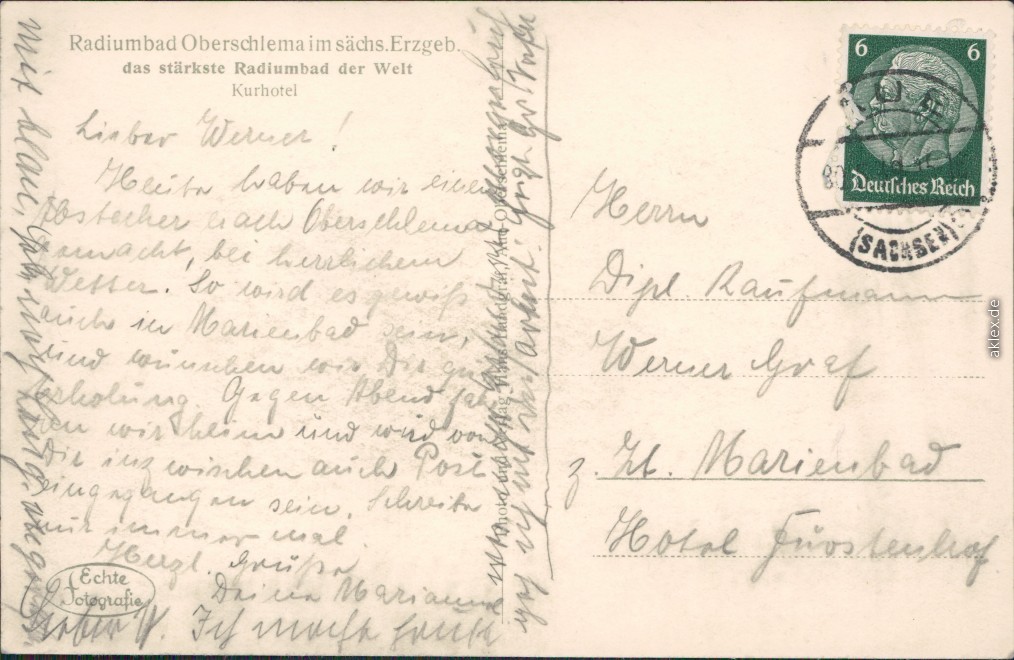 Radiumbad Oberschlema im sächs. Erzgeb.
das stärkste Radiumbad der Welt
Kurhotel
Lieber Werner!
Heute haben wir einen
Abstecher nach Oberschlema
gemacht, bei herrlichem
Wetter. So wird es gewiß
auch in Marienbad sein,
und wünschen wir Dir gute
Erholung. Gegen Abend fah-
ren wir heim und wird von
Dir inzwischen auch Post
eingegangen sein. Schreibe
nur immer mal
Herzl. Grüße
Deine Marianne
Lieber W. Ich mache heute
mit blau,
Echte
Fotografie
Oberschlema
6 6
Deutsches Reich
AUE
(SACHSEN)
Herrn
Dipl. Kaufmann
Werner Graf
z. Zt. Marienbad
Hotel Fürstenhof
aklex.de